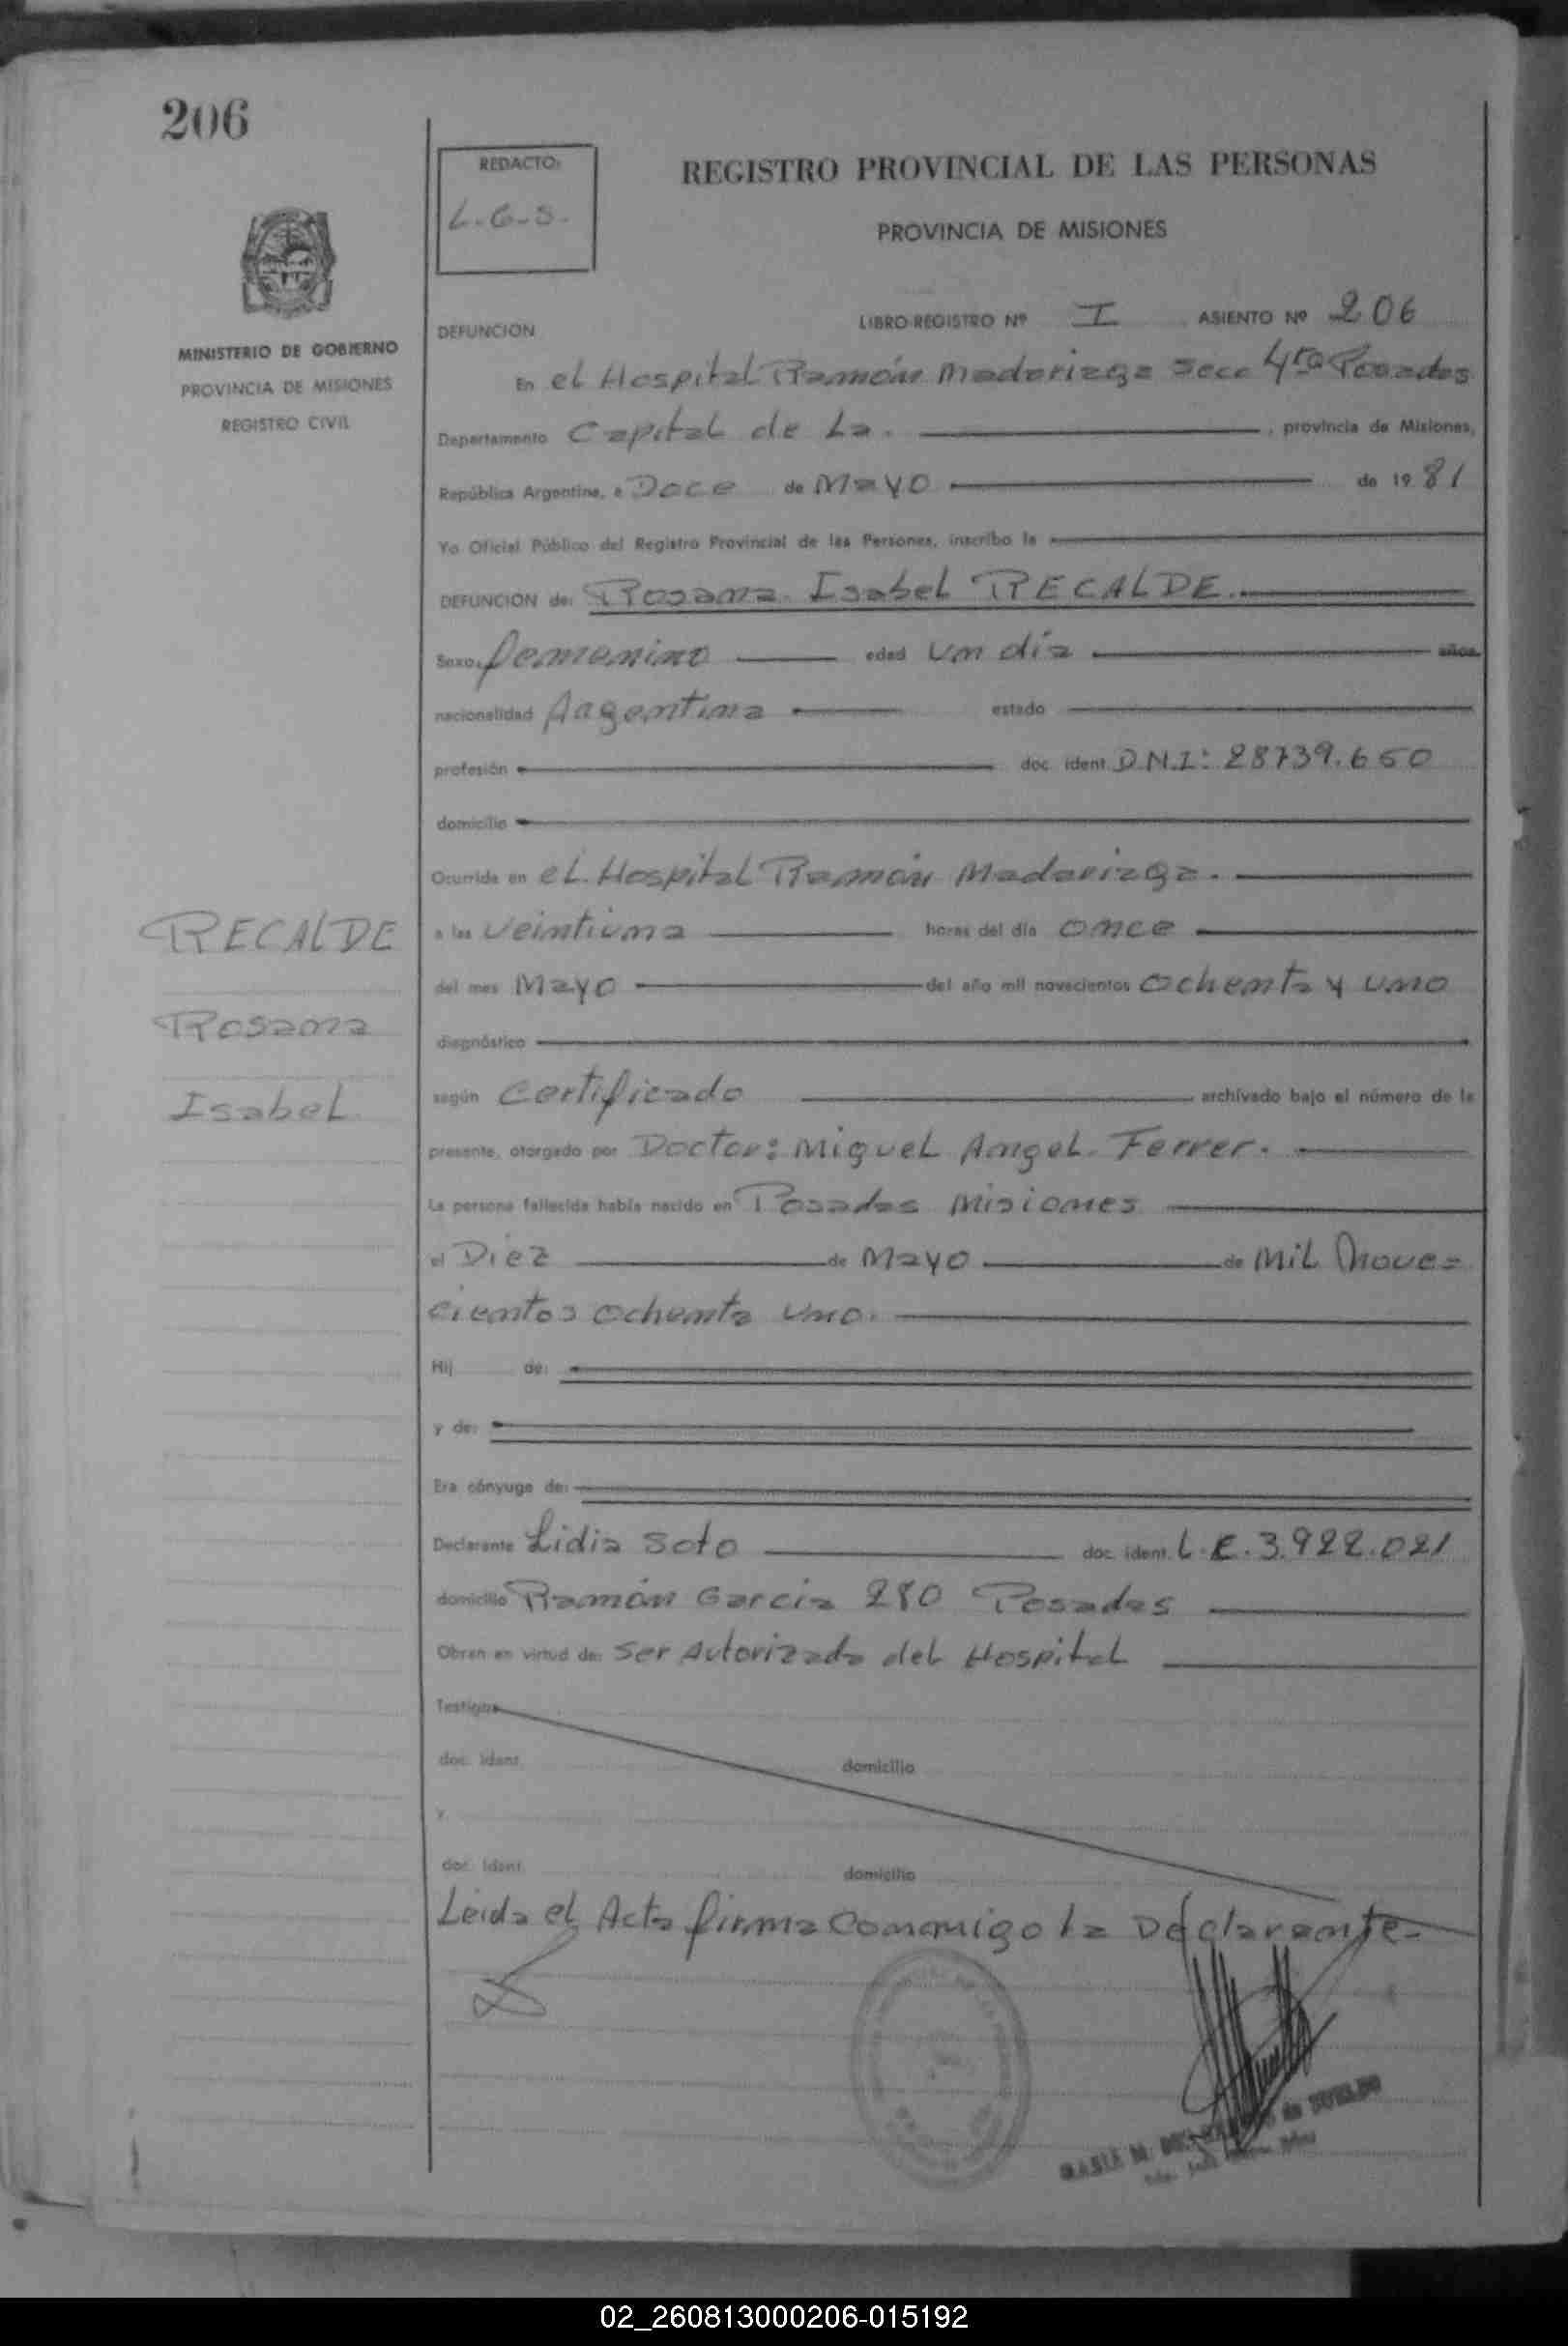 206
REDACTO:
L.G.S.
REGISTRO PROVINCIAL DE LAS PERSONAS
PROVINCIA DE MISIONES
MINISTERIO DE GOBIERNO
PROVINCIA DE MISIONES
REGISTRO CIVIL
DEFUNCION LIBRO-REGISTRO Nº I ASIENTO Nº 206
En el Hospital Ramón Madariaga Secc 4ta Posadas
Departamento Capital de La. , provincia de Misiones,
República Argentina, a Doce de Mayo de 1981
Yo Oficial Público del Registro Provincial de las Personas, inscribo la
DEFUNCION de: Rosana Isabel RECALDE.
Sexo: femenino edad un día años
nacionalidad Argentina estado
profesión doc. ident. D.N.I: 28739.650
domicilio
Ocurrida en el Hospital Ramón Madariaga.
RECALDE
Rosana
Isabel
a las veintiuna horas del día once
del mes Mayo del año mil novecientos ochenta y uno
diagnóstico
según certificado archivado bajo el número de la
presente, otorgado por Doctor: Miguel Angel Ferrer.
La persona fallecida había nacido en Posadas Misiones
el Diez de Mayo de Mil Nove=
cientos ochenta uno.
Hij de:
y de:
Era cónyuge de:
Declarante Lidia Soto doc. ident. L.E. 3.922.021
domicilio Ramón Garcia 280 Posadas
Obran en virtud de: ser Autorizada del Hospital
Testigos
doc. ident. domicilio
y
doc. ident. domicilio
Leida el Acta firma conmigo la Declarante.
02_260813000206-015192